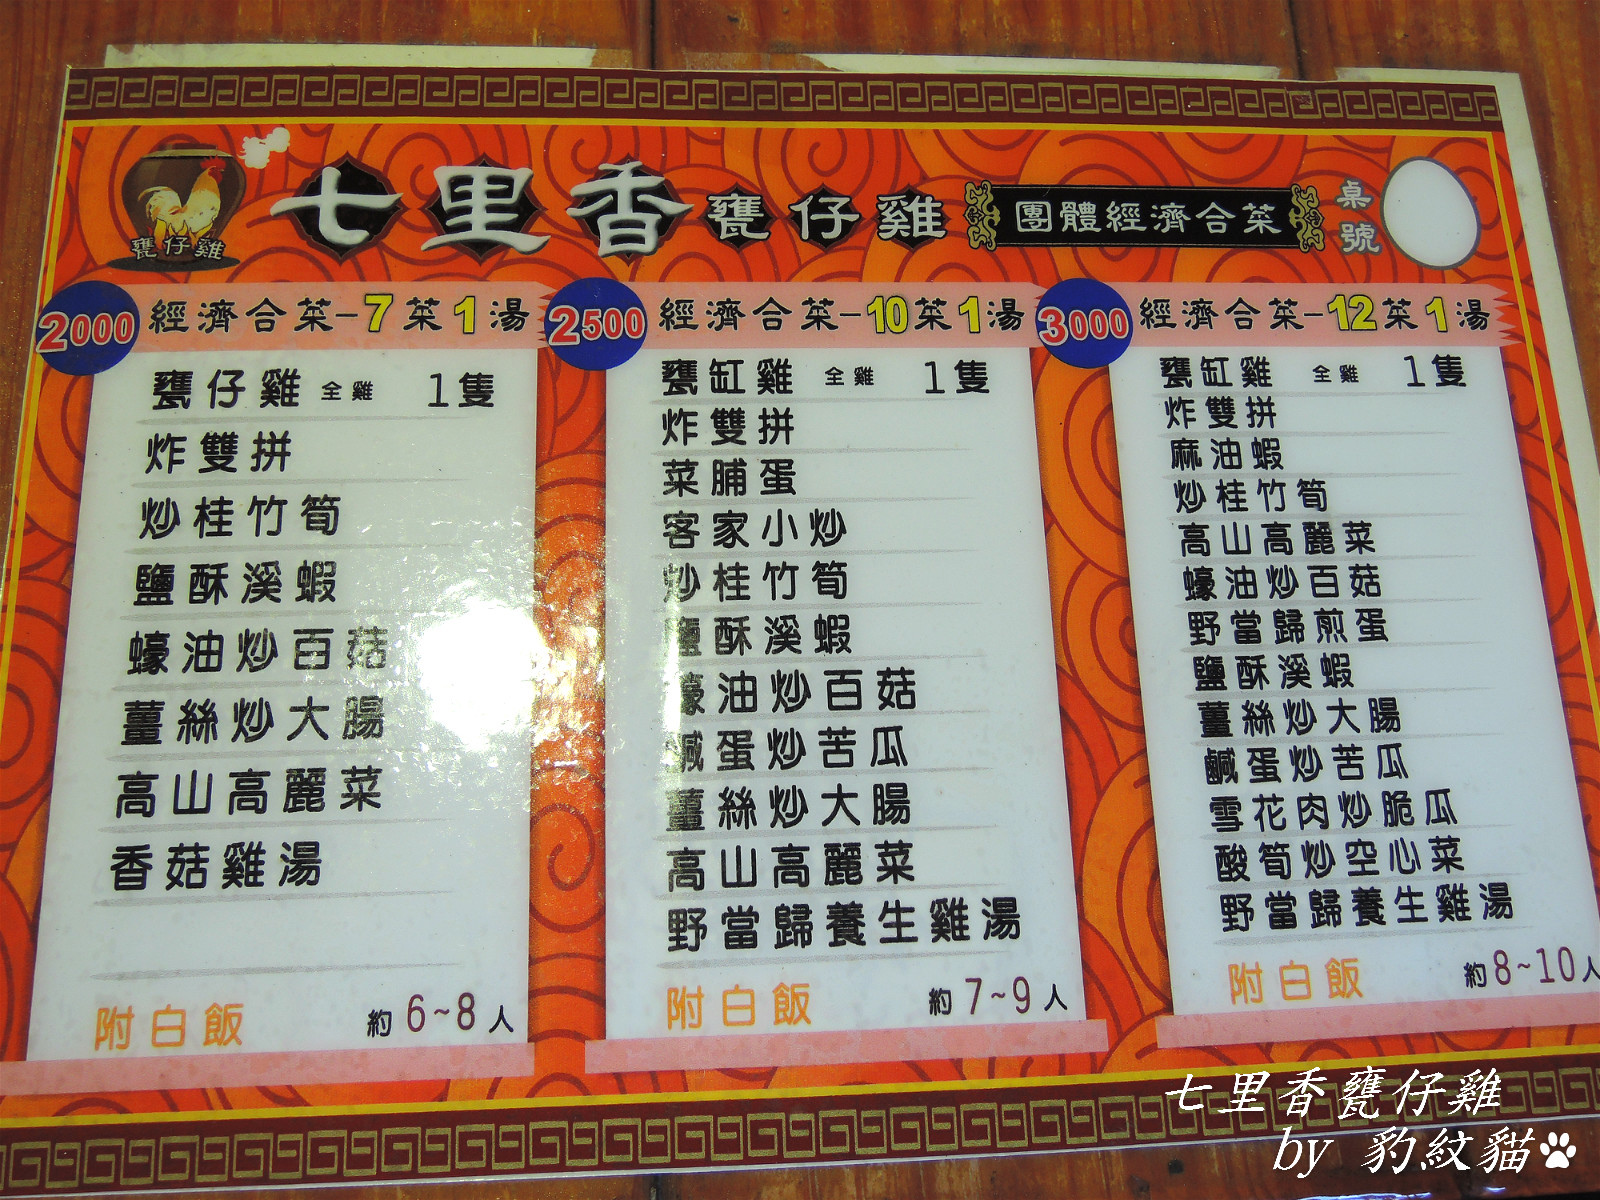 七里香甕仔雞 團體經濟合菜 桌號
甕仔雞
2000 經濟合菜-7菜1湯
甕仔雞 全雞 1隻
炸雙拼
炒桂竹筍
鹽酥溪蝦
蠔油炒百菇
薑絲炒大腸
高山高麗菜
香菇雞湯
附白飯 約6~8人
2500 經濟合菜-10菜1湯
甕缸雞 全雞 1隻
炸雙拼
菜脯蛋
客家小炒
炒桂竹筍
鹽酥溪蝦
蠔油炒百菇
鹹蛋炒苦瓜
薑絲炒大腸
高山高麗菜
野當歸養生雞湯
附白飯 約7~9人
3000 經濟合菜-12菜1湯
甕缸雞 全雞 1隻
炸雙拼
麻油蝦
炒桂竹筍
高山高麗菜
蠔油炒百菇
野當歸煎蛋
鹽酥溪蝦
薑絲炒大腸
鹹蛋炒苦瓜
雪花肉炒脆瓜
酸筍炒空心菜
野當歸養生雞湯
附白飯 約8~10人
七里香甕仔雞
by 豹紋貓